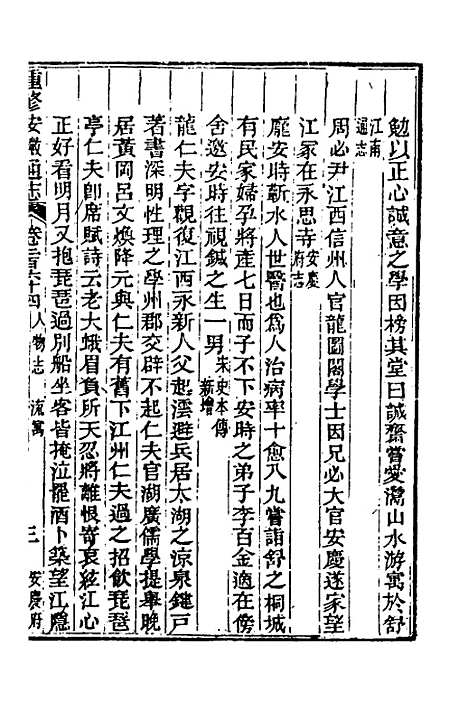 勉以正心誠意之學因榜其堂曰誠齋嘗愛灊山水游寓於舒
江南通志
周必尹江西信州人官龍圖閣學士因兄必大官安慶遂家望
江冢在永思寺安慶府志
龐安時蘄水人世醫也爲人治病率十愈八九嘗詣舒之桐城
有民家婦孕將產七日而子不下安時之弟子李百全適在傍
舍邀安時往視鍼之生一男宋史本傳新增
龍仁夫字觀復江西永新人父起澐避兵居太湖之涼泉鍵戸
著書深明性理之學州郡交辟不起仁夫官湖廣儒學提舉晚
居黃岡呂文煥降元與仁夫有舊下江州仁夫過之招飲琵琶
亭仁夫卽席賦詩云老大蛾眉負所天忍將離恨寄哀絃江心
正好看明月又抱琵琶過別船坐客皆掩泣罷酒卜築望江隱
重修安徽通志
卷二百六十四
人物志
流寓
三
安慶府